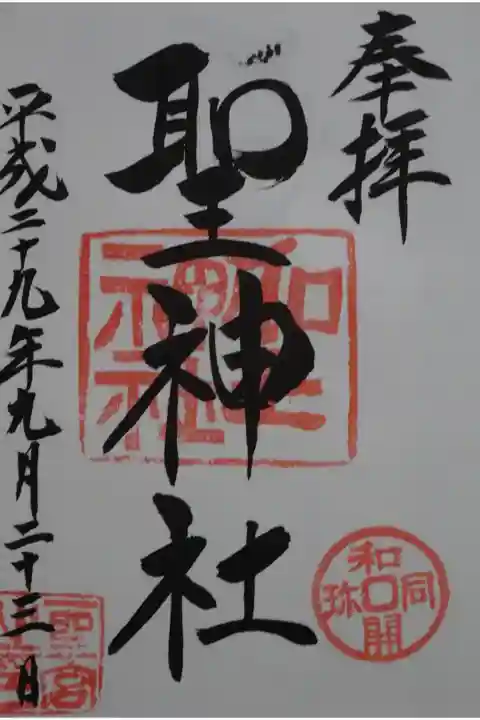 奉拝
聖神社
和同開珎
平成二十九年九月二十三日